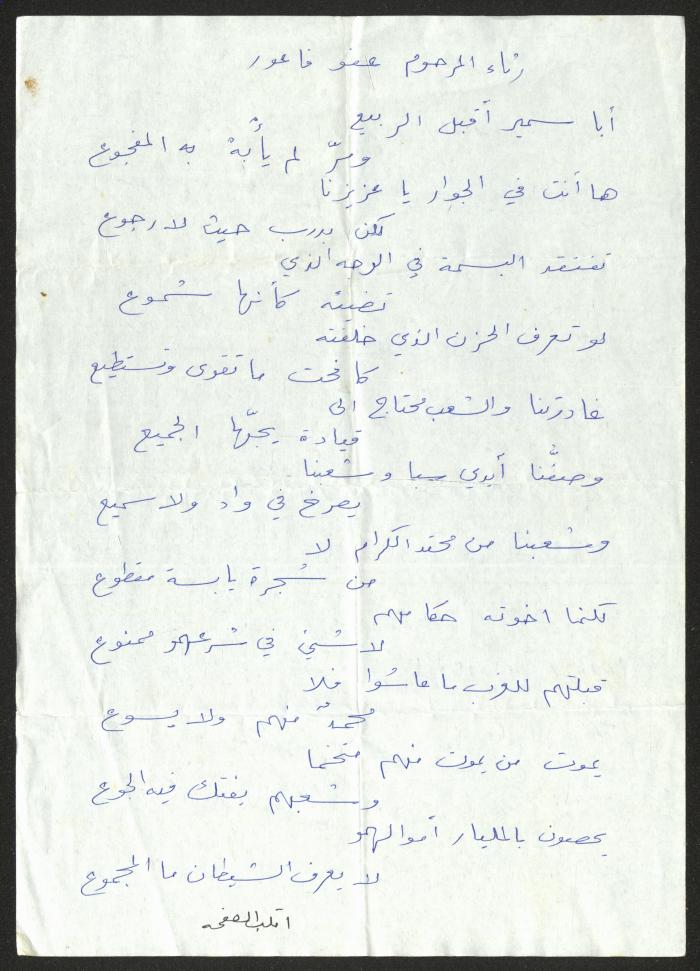 رثاء المرحوم عفو فاعور
أبا سمير أقبل الربيع
ومرّ لم يأبهْ به المفجوع
ها أنت في الجوار يا عزيزنا
لكن بدرب حيث لا رجوع
تفتقد البسمة في الوجه الذي
تضيئه كأنها شموع
لو تعرف الحزن الذي خلفته
كافحت ما تقوى وتستطيع
غادرتنا والشعب محتاج الى
قيادة يجلّها الجميع
وصفُّنا أيدي سبا وشعبنا
يصرخ في واد ولا سميع
وشعبنا من محتد الكرام لا
من شجرة يابسة مقطوع
لكنما اخوته حكامهم
لا شيئ في شرعهمو ممنوع
قبلتهم للغرب ما عاشوا فلا
محمدٌ منهم ولا يسوع
يموت من يموت منهم متخما
وشعبهم يفتك فيه الجوع
يحصون بالمليار أموالهمو
لا يعرف الشيطان ما المجموع
اقلب الصفحه